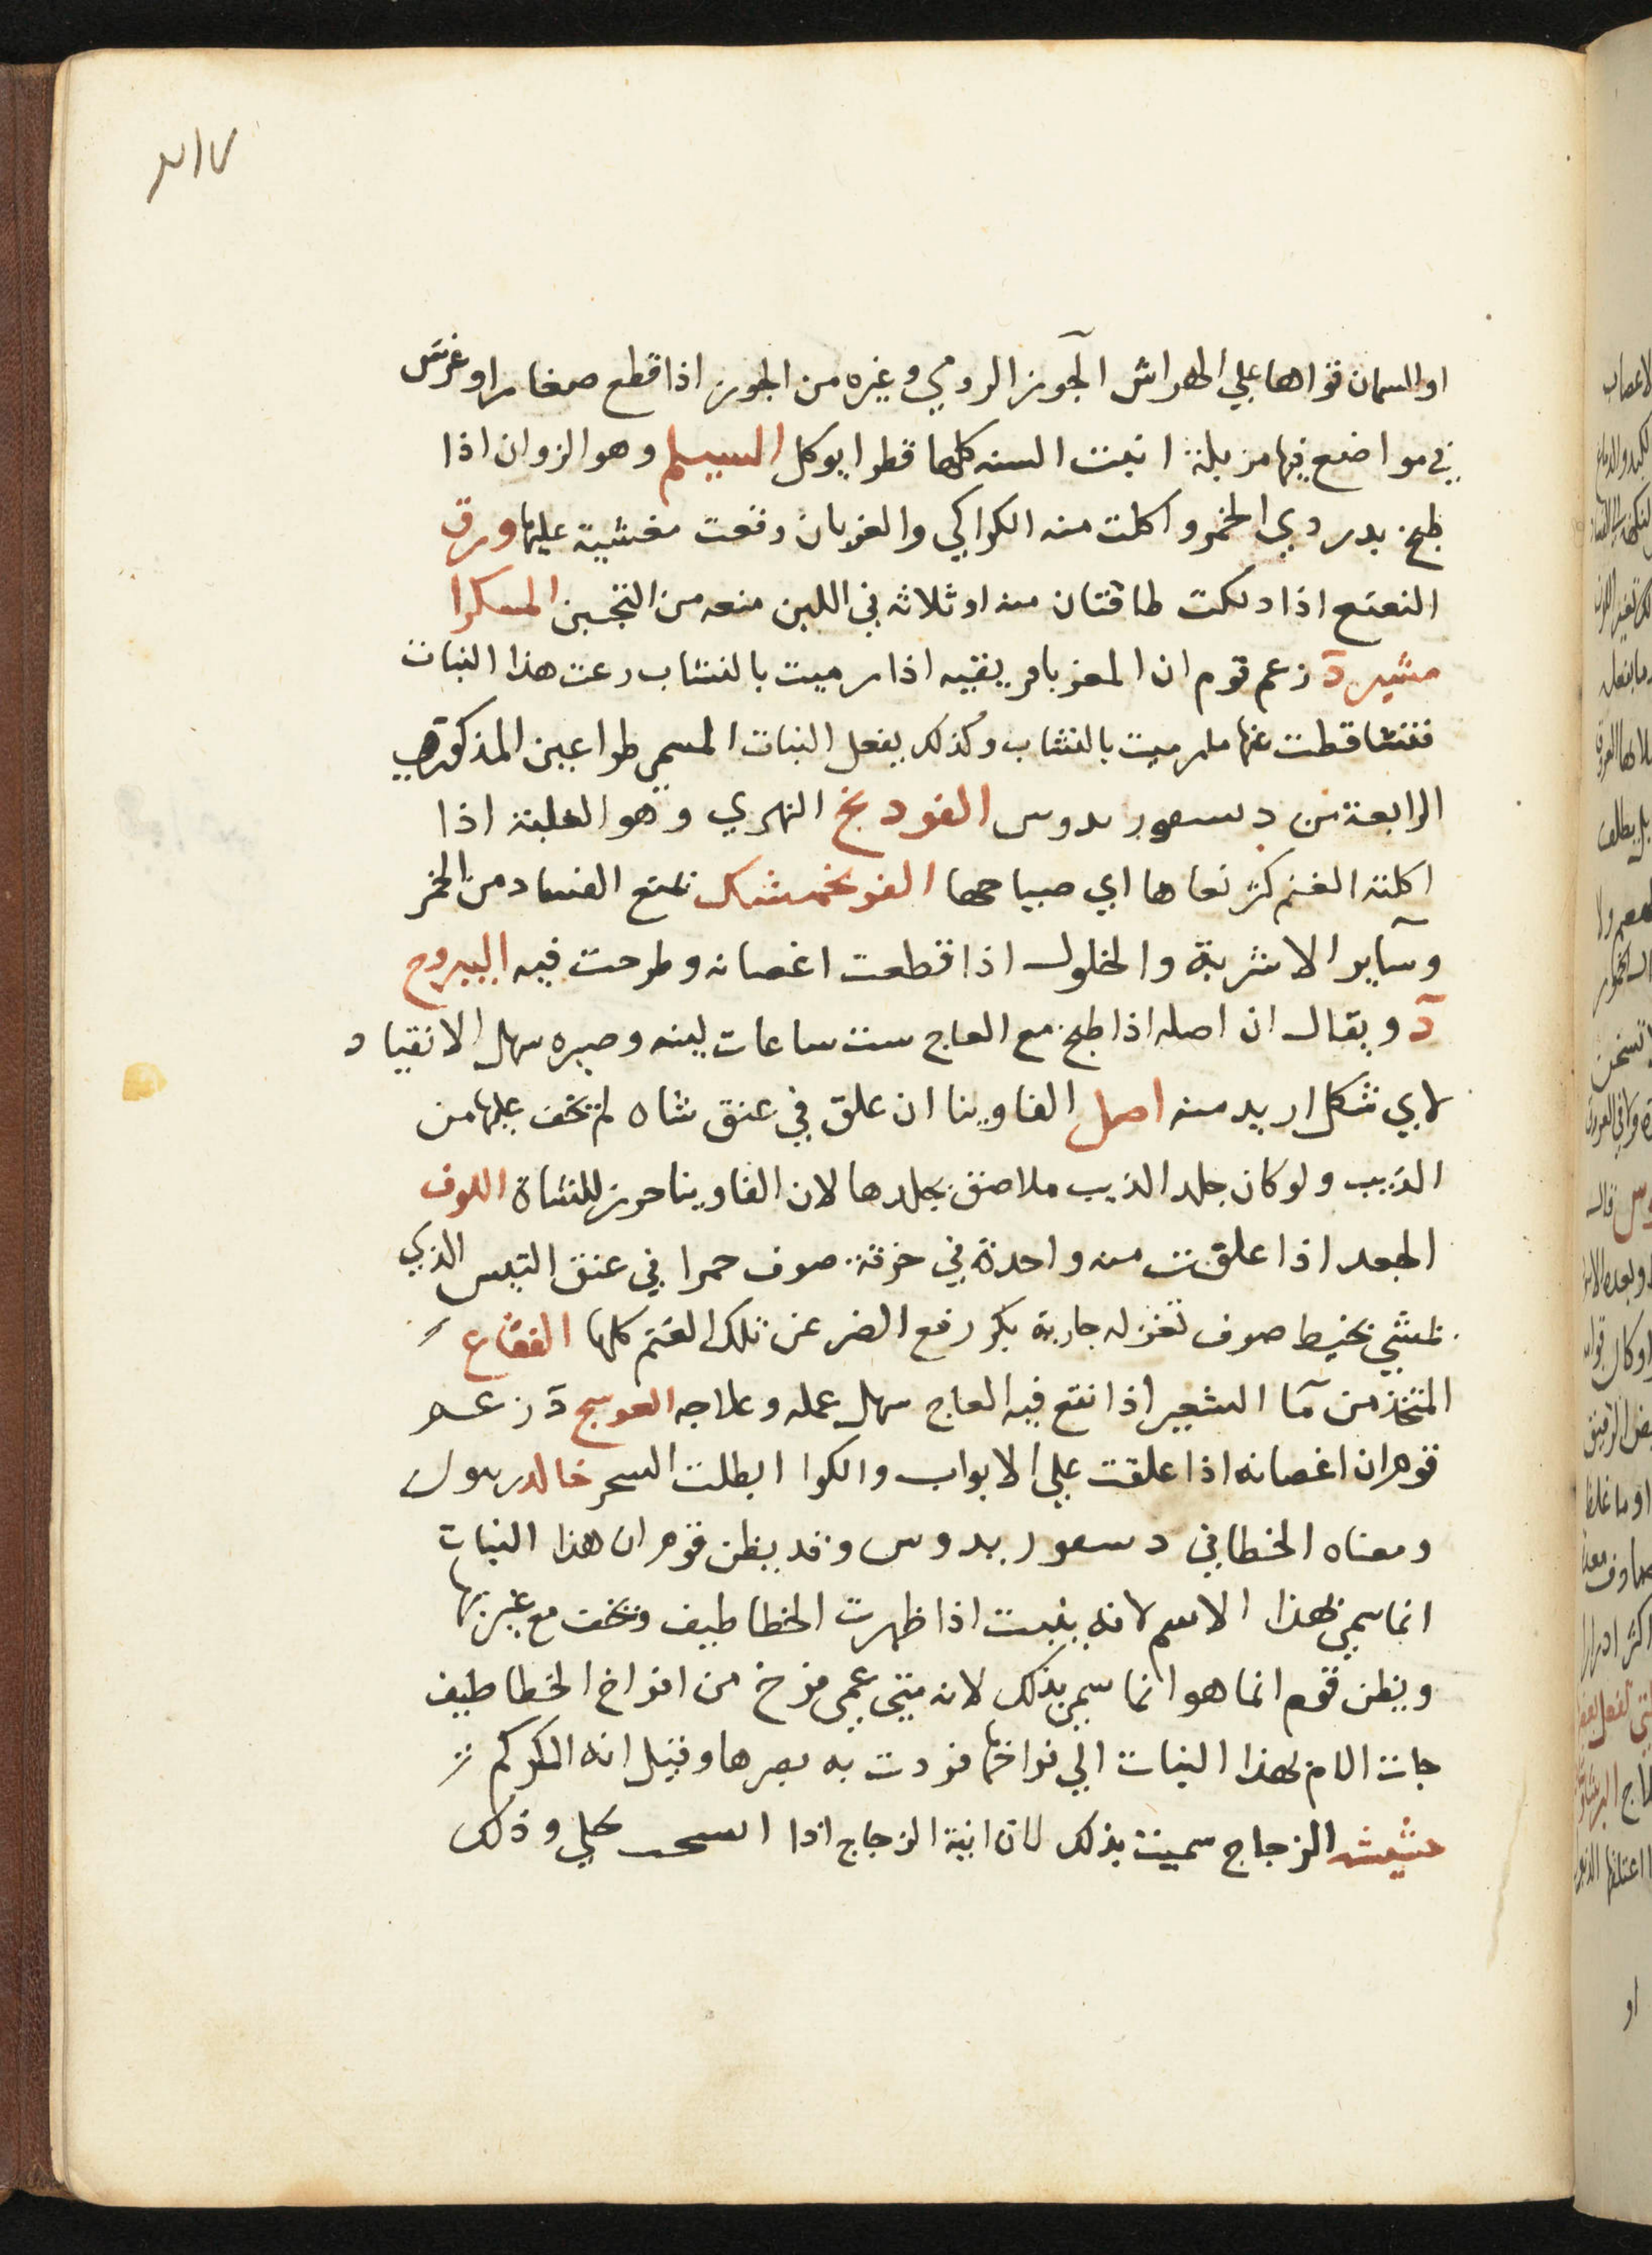 ٢١٧
او السمان قواها علي الهراش الجوز الرومي وغيره من الجوز اذا قطع صغارا وغرس
في مواضع فيها مزبلة انبت السنه كلها قطرا يوكل السيلم وهو الزوان اذا
طبخ بدردي الخمر واكلت منه الكراكي والغربان وقعت مغشية عليها ورق
النعنع اذا دلكت طاقتان منه او ثلاثه في اللبن منعه من التجبن المسكرا
مشير د زعم قوم ان المعز باقريقيه اذا رميت بالنشاب رعت هذا النبات
فتشاقطت عنها ما رميت بالنشاب وكذلك يفعل النبات المسمي طراعين المذكور في
الرابعة من د يسعور يدوس الفودنج النهري وهو الغلبنة اذا
اكلته الغنم كثر نعاها اي صياحها الفرنجمشك تمنع الفساد من الخمر
وساير الاشربة والخلول اذا قطعت اغصانه وطرحت فيه اليبروح
د ويقال ان اصله اذا طبخ مع العاج ست ساعات لينه وصيره سهل الانقياد
لاي شكل اريد منه اصل الفاوينا ان علق في عنق شاه لم تخف عليها من
الذيب ولو كان جلد الذيب ملاصق بجلدها لان الفاوينا حرز للشاة اللوف
الجعد اذا علقت منه واحدة في خرقة صوف حمرا في عنق التيس الذي
يمشي بخيط صوف تغزله جارية بكر رفع الضر عن تلك الغنم كلها الفقاع
المتخذ من ما الشعير اذا انقع فيه العاج سهل عمله وعلاجه العوسج د زعم
قوم ان اغصانه اذا علقت علي الابواب والكوا ابطلت السحر خالدريبول
ومعناه الخطافي د يسعور يدوس وقد يظن قوم ان هذا النبات
انما سمي بهذا الاسم لانه ينبت اذا ظهرت الخطاطيف وتخف مع غيبتها
ويظن قوم انما هو انما سمي بذلك لانه متي عمي فرخ من افراخ الخطاطيف
جات الام بهذا النبات الي فراخها فردت به بصرها وقيل انه الكركم
حشيشه الزجاج سميت بذلك لان انية الزجاج اذا وذلك